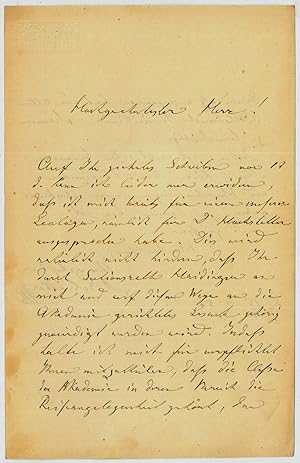 Hochgeehrtester Herr!
Auf Ihr geehrtes Schreiben vom 12
d. kann ich leider nur erwidern,
daß ich mich bereits für einen unserer
Geologen, nämlich für D Hochstetter
ausgesprochen habe. Dies wird
natürlich nicht hindern, daß Ihr
durch Sectionsrath Haidinger an
mich und auf diesem Wege an die
Akademie gerichtetes Gesuch gehörig
gewürdigt werden wird. Indeß
halte ich mich für verpflichtet
Ihnen mitzutheilen, daß die Classe
der Akademie in deren Bereich die
Reiseangelegenheit gehört, den